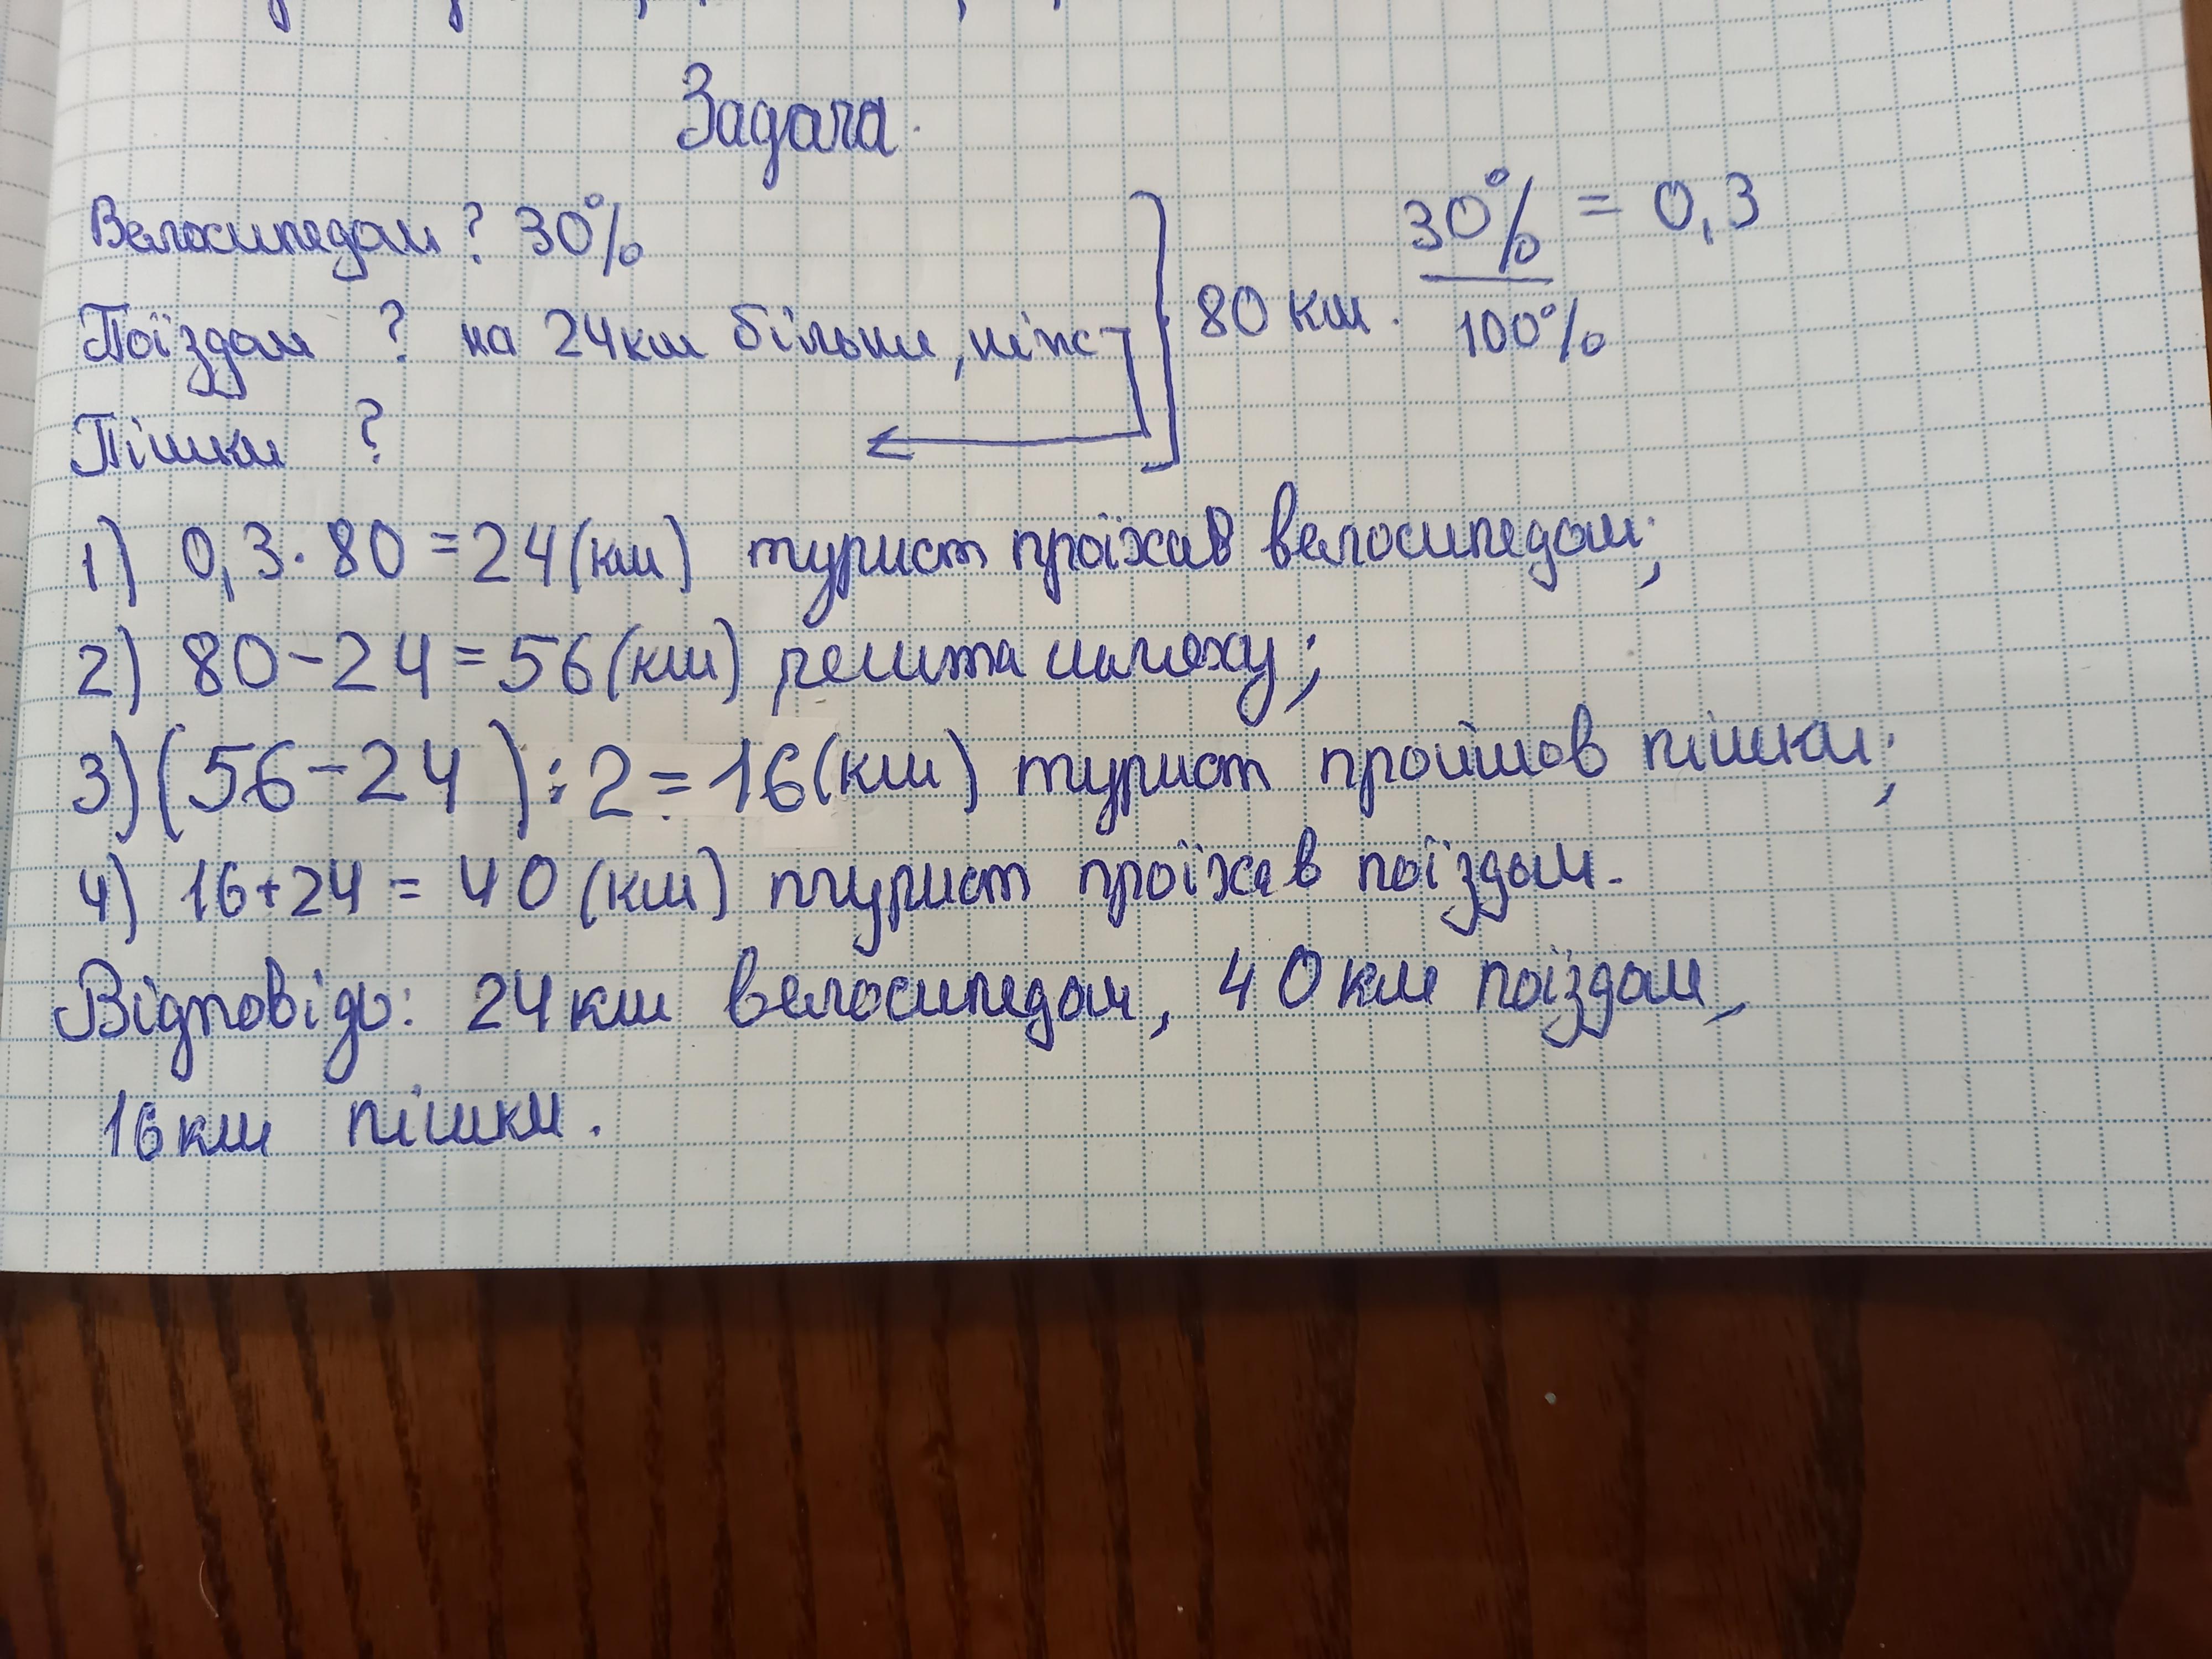 Задача.
Велосипедом ? 30%
30% = 0,3
Поїздом ? на 24 км більше, ніж
80 км.
100%
Пішки ?
1) 0,3·80 = 24 (км) турист проїхав велосипедом;
2) 80-24 = 56 (км) решта шляху;
3) (56-24) : 2 = 16 (км) турист пройшов пішки;
4) 16+24 = 40 (км) турист проїхав поїздом.
Відповідь: 24 км велосипедом, 40 км поїздом,
16 км пішки.